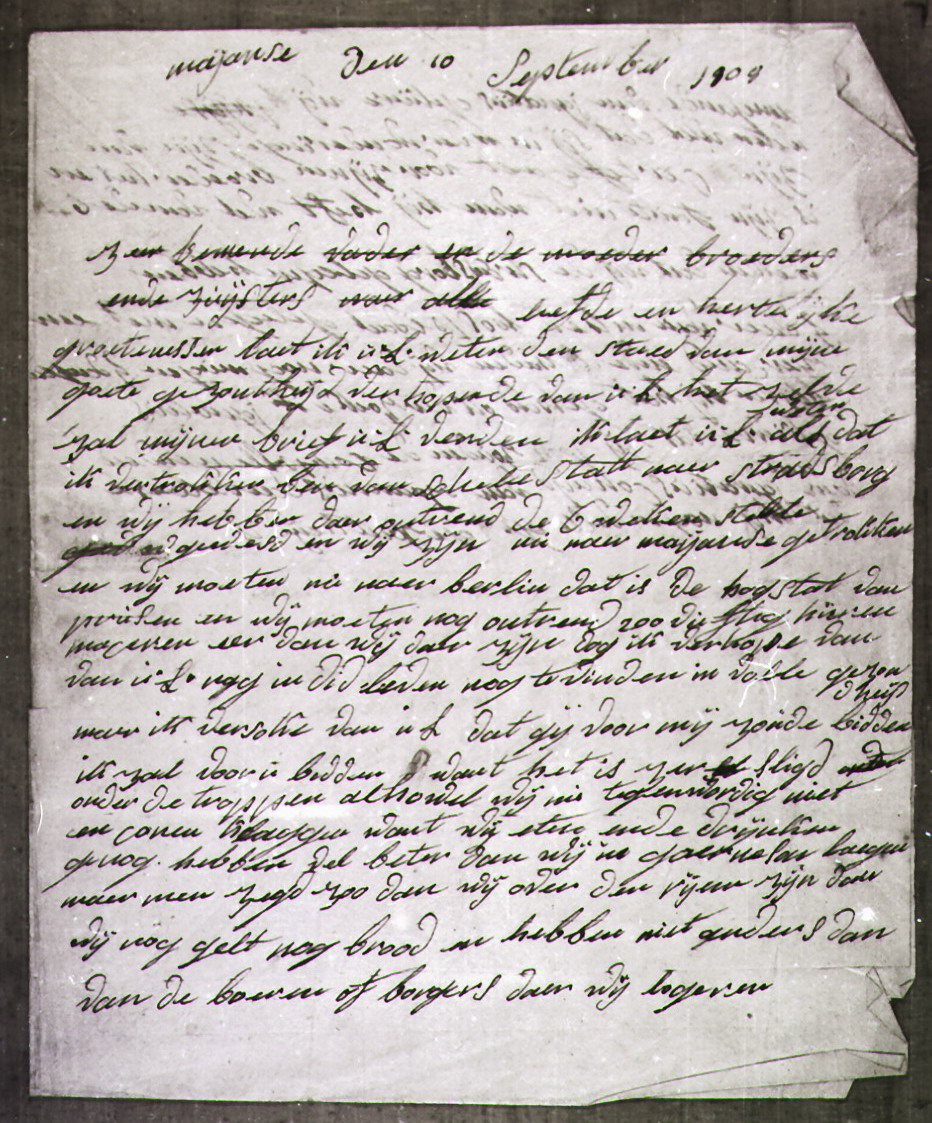 majanse Den 10 September 1808
zeer beminde vader en de moeder broeders
ende zuijsters naer alle liefde en hertelijke
groetenissen laet ik u:L: weten den staed van mijne
goete gezontheijd verhopende van u L het zelve
zal mijnen brief u:L venden ik laet u:L weten als dat
ik vertrokken ben van schelestatt naer straesborg
en wij hebben daer ontrend de 6 weken
gewesd en wij zijn nu naer maijanse getrokken
en wij moeten nu naer berlin dat is de hogstat van
prusen en wij moeten nog ontrend 200 vijftig huren
maceren eer dan wij daer zijn dog ik verhope van
van u:L: nog in did leven nog te vinden in volle gezondheijd
maer ik versoke van u L dat gij voor mij zoude bidden
ik zal voor u bidden want het is zeer sligd
onder de troppen alhowel wij nu tegenwordig niet
en connen klaggen want wij eten ende drijnken
genog hebben vel beter dan wij in garnison laegen
maer men zegd zoo dan wij over den rijen zijn dan
wij nog gelt nog brood en hebben niet anders dan
van de boeren of borgers daer wij logeren